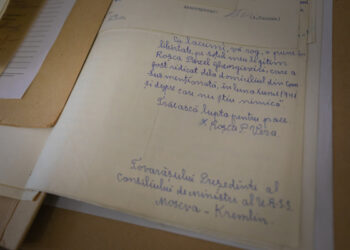 Cu lacrimi, vă rog, a pune în
libertate pe soțul meu legitim
Roșca Pavel Gheorghevici, care a
fost ridicat dela domiciliul din com.
sus menționată, în luna
și despre care nu știu nimica"
Trăiască lupta pentru pace
X Roșca P. Vera
Tovarășului Președinte al
Consiliului de miniștri al U.R.S.S.
Moscva - Kremlin